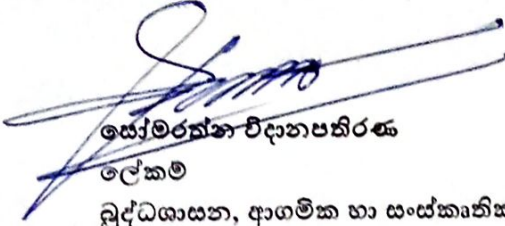 සෝමරත්න විදානපතිරණ
ලේකම්
බුද්ධශාසන, ආගමික හා සංස්කෘතික